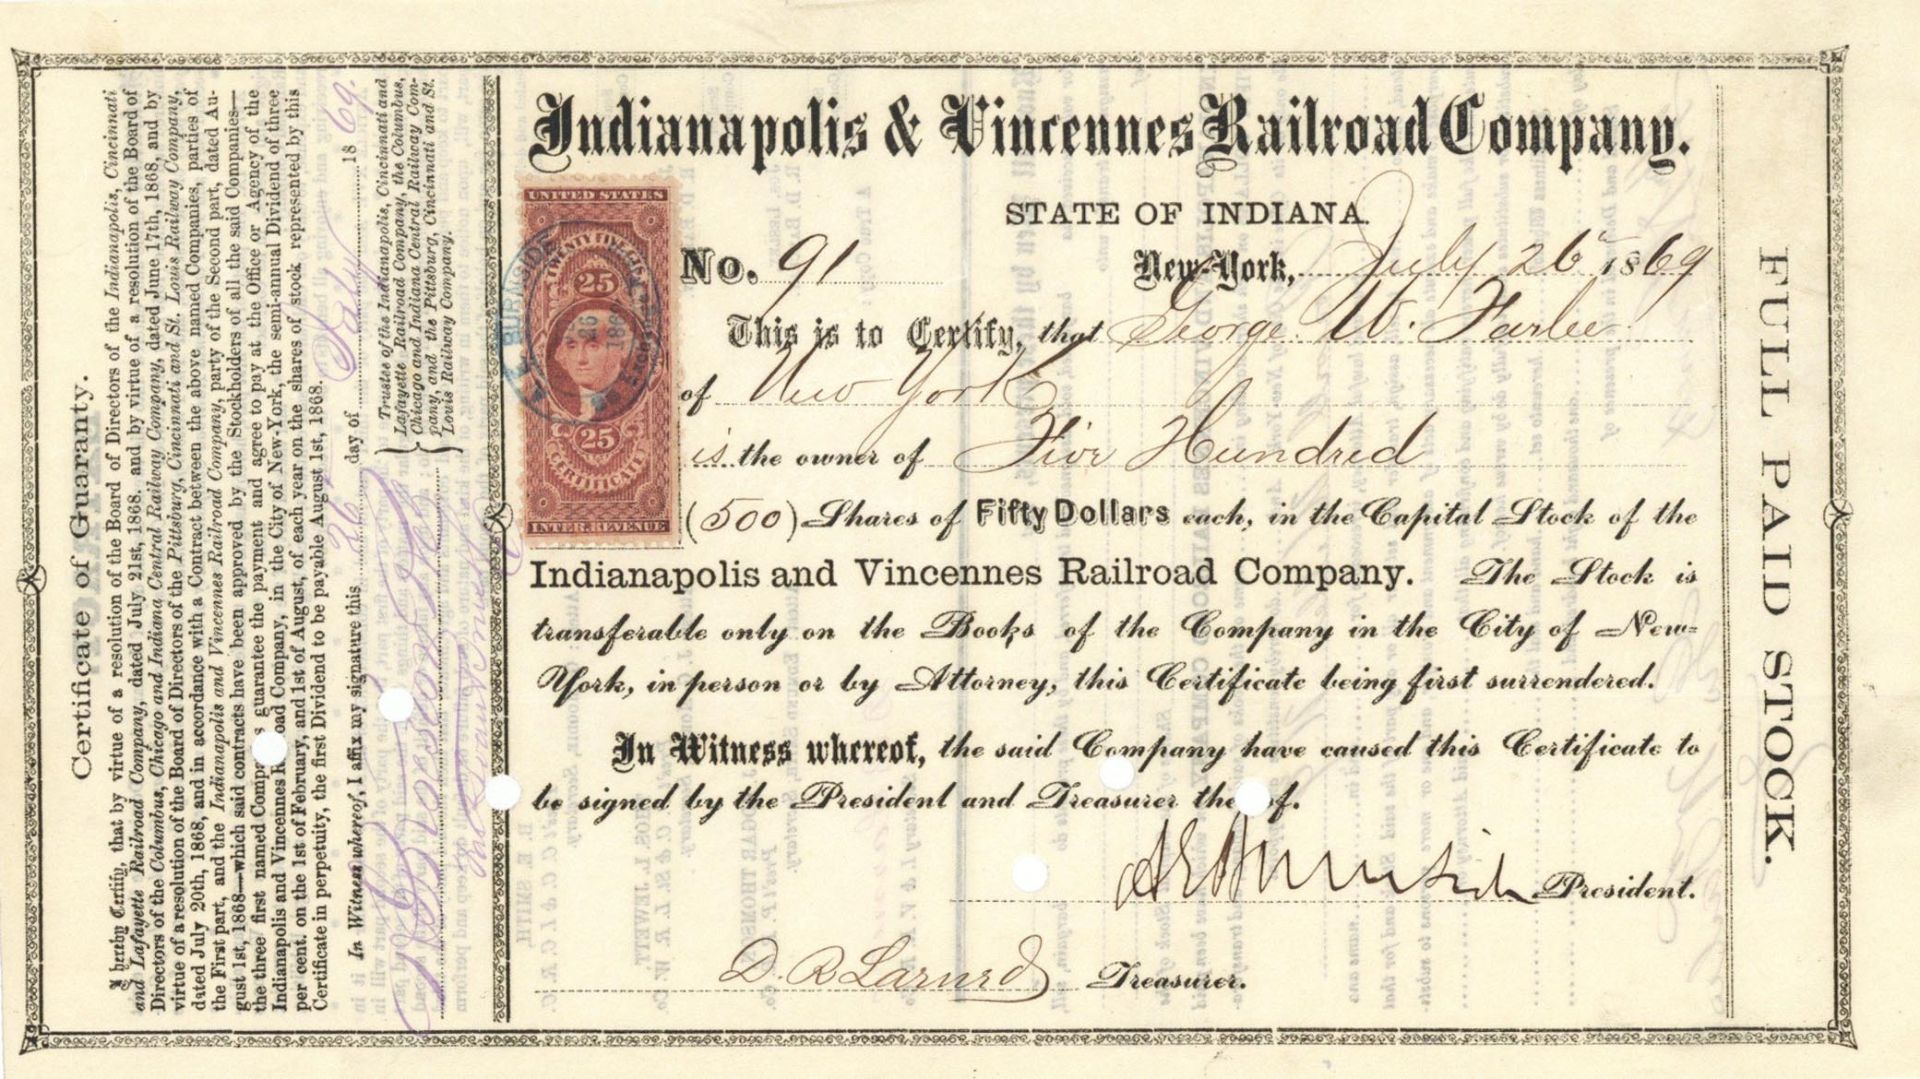 Indianapolis & Vincennes Railroad Company.
STATE OF INDIANA.
No. 91
New-York, July 26 1869
This is to Certify, that George W. Farlee
of New York
is the owner of Five Hundred
(500) Shares of Fifty Dollars each, in the Capital Stock of the
Indianapolis and Vincennes Railroad Company. The Stock is
transferable only on the Books of the Company in the City of New-
York, in person or by Attorney, this Certificate being first surrendered.
In Witness whereof, the said Company have caused this Certificate to
be signed by the President and Treasurer thereof.
President.
D. R. Larned Treasurer.
FULL PAID STOCK.
UNITED STATES
TWENTY FIVE CENTS
25
25
CERTIFICATE
INTER. REVENUE
BURNSIDE
Certificate of Guaranty.
I hereby Certify, that by virtue of a resolution of the Board of Directors of the Indianapolis, Cincinnati
and Lafayette Railroad Company, dated July 21st, 1868, and by virtue of a resolution of the Board of
Directors of the Columbus, Chicago and Indiana Central Railway Company, dated June 17th, 1868, and by
virtue of a resolution of the Board of Directors of the Pittsburg, Cincinnati and St. Louis Railway Company,
dated July 20th, 1868, and in accordance with a Contract between the above named Companies, parties of
the First part, and the Indianapolis and Vincennes Railroad Company, party of the Second part, dated Au-
gust 1st, 1868—which said contracts have been approved by the Stockholders of all the said Companies—
the three first named Companies guarantee the payment and agree to pay at the Office or Agency of the
Indianapolis and Vincennes Railroad Company, in the City of New-York, the semi-annual Dividend of three
per cent. on the 1st of February, and 1st of August, of each year on the shares of stock represented by this
Certificate in perpetuity, the first Dividend to be payable August 1st, 1868.
In Witness whereof, I affix my signature this 26 day of July 1869.
Trustee of the Indianapolis, Cincinnati and
Lafayette Railroad Company, the Columbus,
Chicago and Indiana Central Railway Com-
pany, and the Pittsburg, Cincinnati and St.
Louis Railway Company.